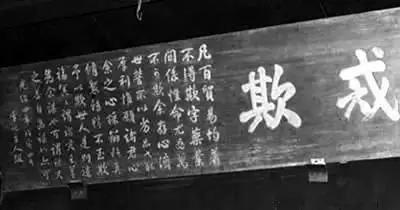 戒欺
凡百貿易均著
不得欺字藥業
関係性命尤為萬
不可欺余存心濟
世誓不以劣品弋取
厚利惟願諸君心
余之心採辦務真
修製務精不至欺
予以欺世人是則造
福冥冥謂諸君之
善為余謀也可謂諸君
之善自為謀也亦可